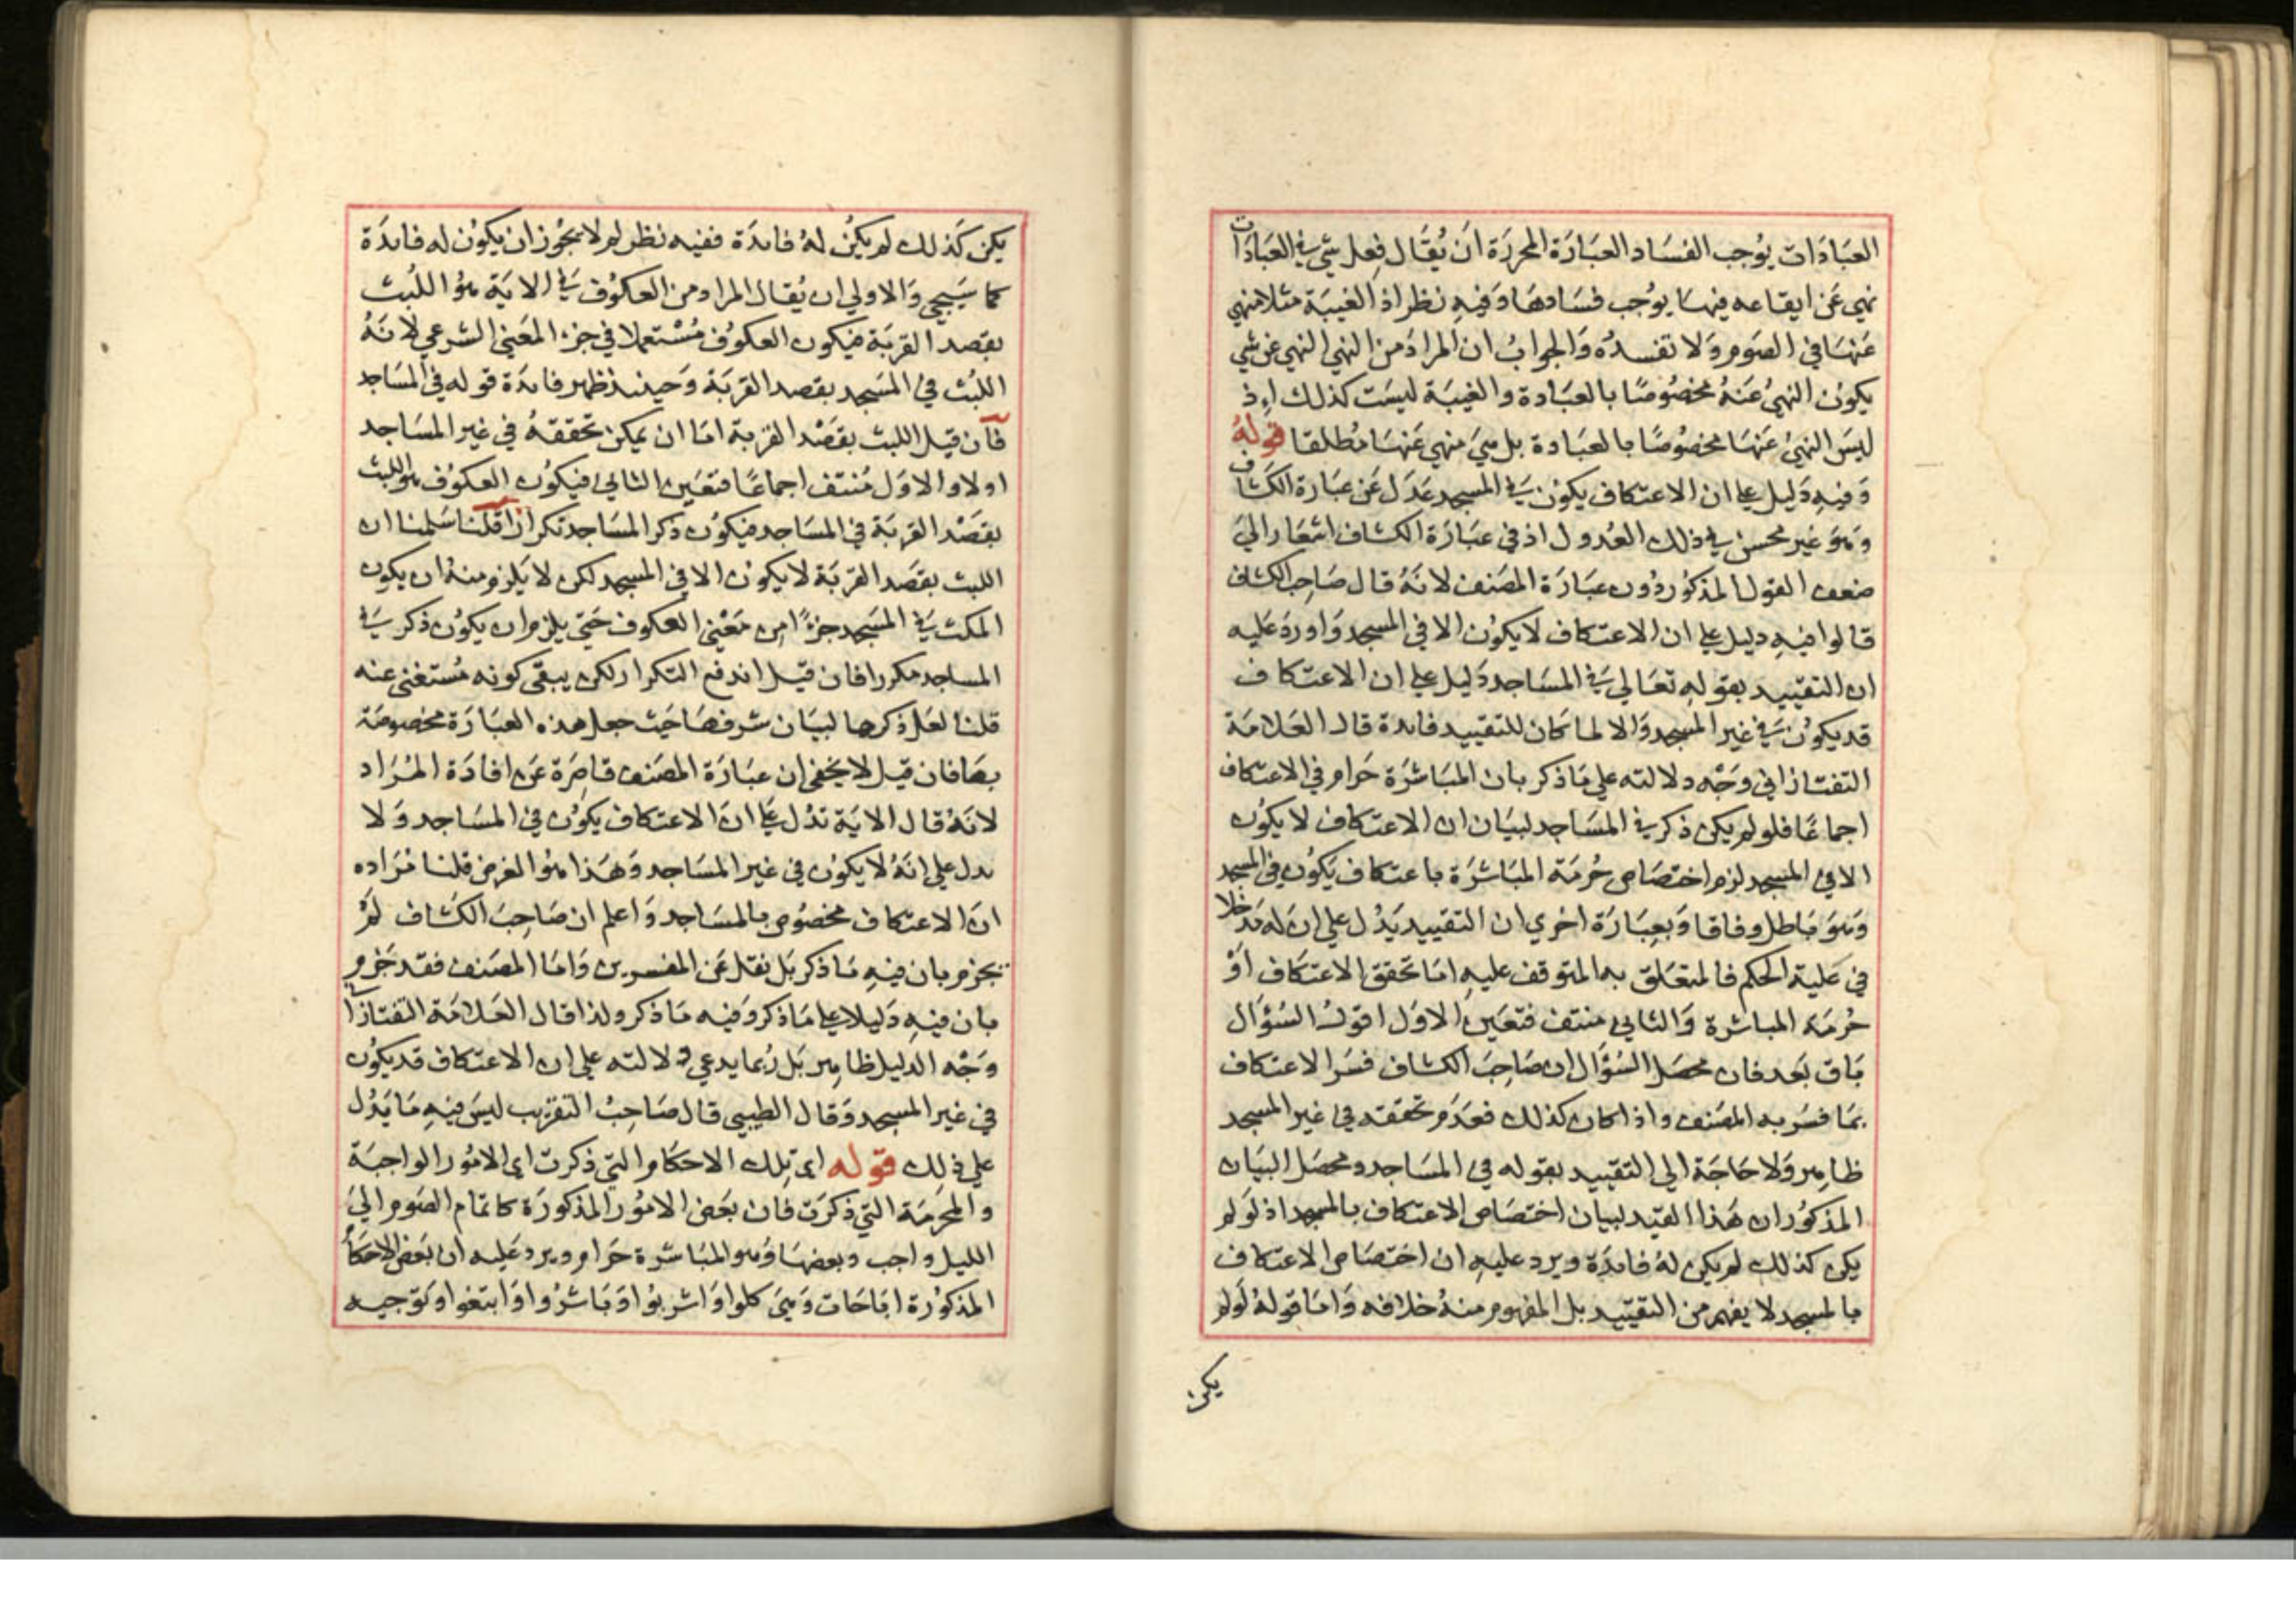 العبادات يوجب الفساد العبارة المحررة ان يقال فعل شي في العبادات
نهي عن ايقاعه فيها يوجب فسادها وفيه نظر اذ الغيبة مثلا منهي
عنها في الصوم ولا تفسده والجواب ان المراد من النهي النهي عن شي
يكون النهي عنه مخصوصا بالعبادة والغيبة ليست كذلك اذ
ليس النهي عنها مخصوصا بالعبادة بل هي منهي عنها مطلقا قوله
وفيه دليل علي ان الاعتكاف يكون في المسجد عدل عن عبارة الكشاف
وهو غير محسن في ذلك العدول اذ في عبارة الكشاف اشعار الي
ضعف القول المذكور دون عبارة المصنف لانه قال صاحب الكشاف
قالوا فيه دليل علي ان الاعتكاف لا يكون الا في المسجد واورد عليه
ان التقييد بقوله تعالي في المساجد دليل علي ان الاعتكاف
قد يكون في غير المسجد والا لما كان للتقييد فائدة قال العلامة
التفتازاني وجه دلالته علي ما ذكر بان المباشرة حرام في الاعتكاف
اجماعا فلو لم يكن ذكر في المساجد لبيان ان الاعتكاف لا يكون
الا في المسجد لزم اختصاص حرمة المباشرة باعتكاف يكون في المسجد
وهو باطل وفاقا وبعبارة اخري ان التقييد يدل علي ان له مدخلا
في علية الحكم فالمتعلق به المتوقف عليه اما تحقق الاعتكاف او
حرمة المباشرة والثاني منتف فتعين الاول اقول السؤال
باق بعد فان محصل السؤال ان صاحب الكشاف فسر الاعتكاف
بما فسر به المصنف واذا كان كذلك فعدم تحققه في غير المسجد
ظاهر ولا حاجة الي التقييد بقوله في المساجد ومحصل البيان
المذكور ان هذا القيد لبيان اختصاص الاعتكاف بالمسجد اذ لو لم
يكن كذلك لم يكن له فائدة ويرد عليه ان اختصاص الاعتكاف
بالمسجد لا يفهم من التقييد بل المفهوم منه خلافه واما قوله لو لم
يكن
يكن كذلك لم يكن له فائدة ففيه نظر لم لا يجوز ان يكون له فائدة
كما سيجي والاولي ان يقال المراد من العكوف في الاية هو اللبث
بقصد القربة فيكون العكوف مستعملا في جزء المعني الشرعي لانه
اللبث في المسجد بقصد القربة وحينئذ ظهر فائدة قوله في المساجد
فان قيل اللبث بقصد القربة اما ان يمكن تحققه في غير المساجد
اولا والاول منتف اجماعا فتعين الثاني فيكون العكوف هو اللبث
بقصد القربة في المساجد فيكون ذكر المساجد تكرارا قلنا سلمنا ان
اللبث بقصد القربة لا يكون الا في المسجد لكن لا يلزم منه ان يكون
المكث في المسجد جزءا من معني العكوف حتي يلزم ان يكون ذكر في
المساجد مكررا فان قيل اندفع التكرار لكن يبقى كونه مستغنى عنه
قلنا لعل ذكرها لبيان شرفها حيث جعل هذه العبارة مخصوصة
بها فان قيل لا يخفى ان عبارة المصنف قاصرة عن افادة المراد
لانه قال الاية تدل علي ان الاعتكاف يكون في المساجد ولا
يدل علي انه لا يكون في غير المساجد وهذا هو الغرض قلنا مراده
ان الاعتكاف مخصوص بالمساجد واعلم ان صاحب الكشاف لم
يجزم بان فيه ما ذكر بل نقل عن المفسرين واما المصنف فقد جزم
بان فيه دليلا علي ما ذكر وفيه ما ذكر ولذا قال العلامة التفتازا
وجه الدليل ظاهر بل ربما يدعي دلالته علي ان الاعتكاف قد يكون
في غير المسجد وقال الطيبي قال صاحب التقريب ليس فيه ما يدل
علي ذلك قوله اي تلك الاحكام التي ذكرت اي الامور الواجبة
والمحرمة التي ذكرت فان بعض الامور المذكورة كاتمام الصوم الي
الليل واجب وبعضها وهو المباشرة حرام ويرد عليه ان بعض الاحكام
المذكورة اباحات وهي كلوا واشربوا وباشروا وابتغوا وتوجيه